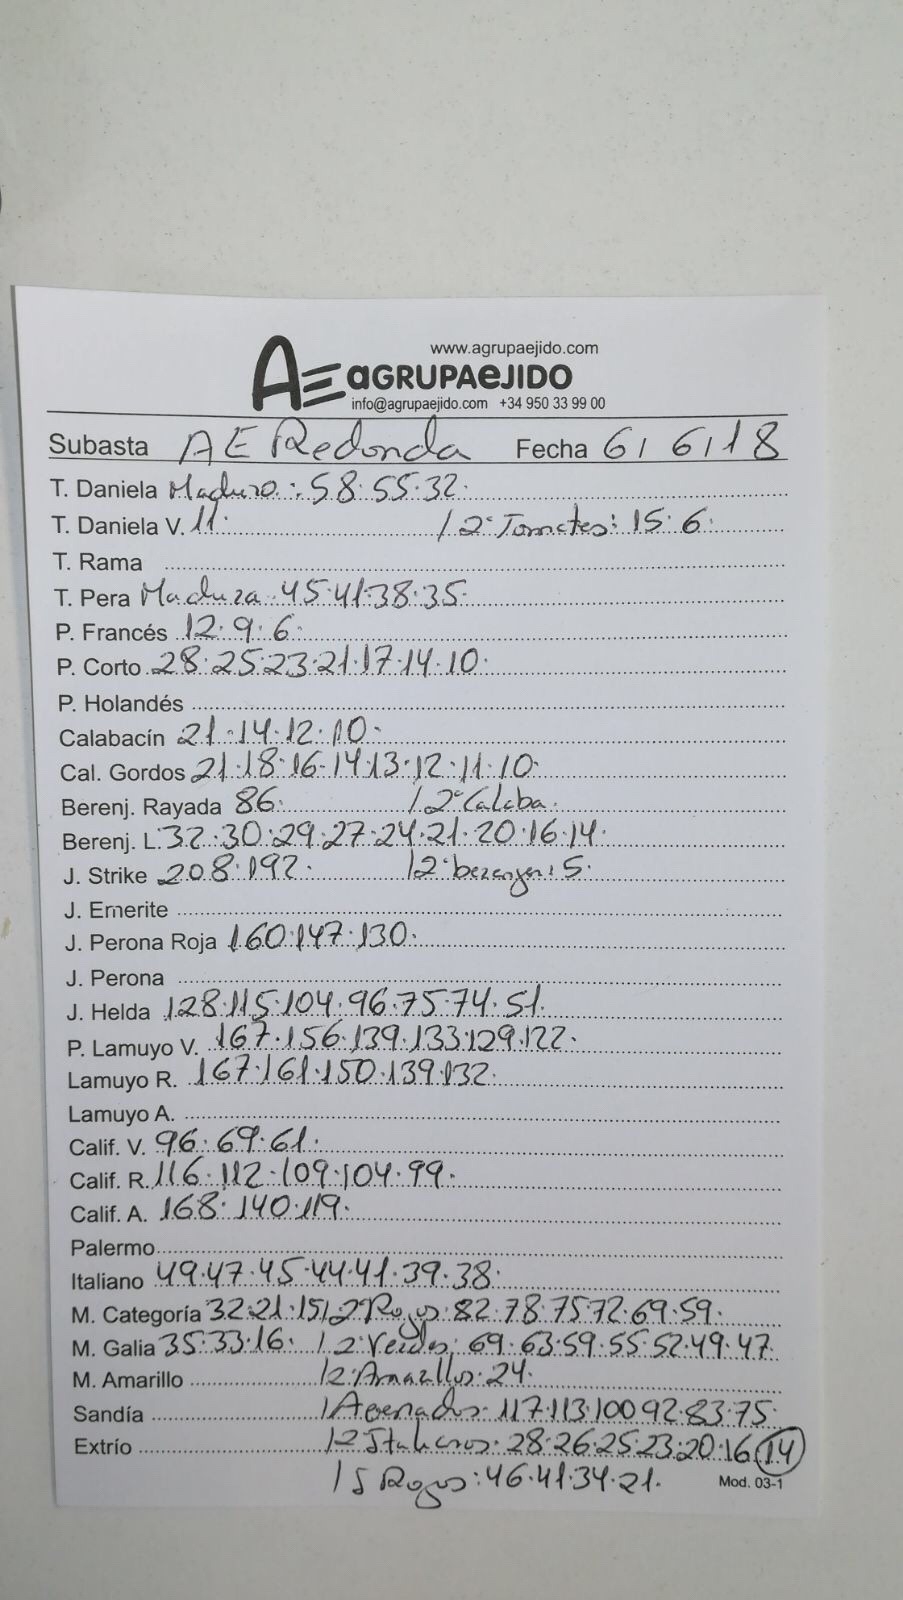 www.agrupaejido.com
AE aGRUPAeJIDO
info@agrupaejido.com +34 950 33 99 00
Subasta AE Redonda Fecha 6/6/18
T. Daniela Maduro: 58·55·32·
T. Daniela V. 11· / 2ª Tomates: 15·6·
T. Rama
T. Pera Madura 45·41·38·35·
P. Francés 12·9·6·
P. Corto 28·25·23·21·17·14·10·
P. Holandés
Calabacín 21·14·12·10·
Cal. Gordos 21·18·16·14·13·12·11·10·
Berenj. Rayada 86· / 2ª Calaba·
Berenj. L. 32·30·29·27·24·21·20·16·14·
J. Strike 208·192· / 2ª berenjen: 5·
J. Emerite
J. Perona Roja 160·147·130·
J. Perona
J. Helda 128·115·104·96·75·74·51·
P. Lamuyo V. 167·156·139·133·129·122·
Lamuyo R. 167·161·150·139·132·
Lamuyo A.
Calif. V. 96·69·61·
Calif. R. 116·112·109·104·99·
Calif. A. 168·140·119·
Palermo
Italiano 49·47·45·44·41·39·38·
M. Categoría 32·21·15 / 2ª Rojos: 82·78·75·72·69·59·
M. Galia 35·33·16· / 2ª Verdes: 69·63·59·55·52·49·47·
M. Amarillo / 2ª Amarillos: 24·
Sandía / Asenados: 117·113·100·92·83·75·
Extrío / 2 Italianos: 28·26·25·23·20·16 14
/ 5 Rojos: 46·41·34·21·
Mod. 03-1